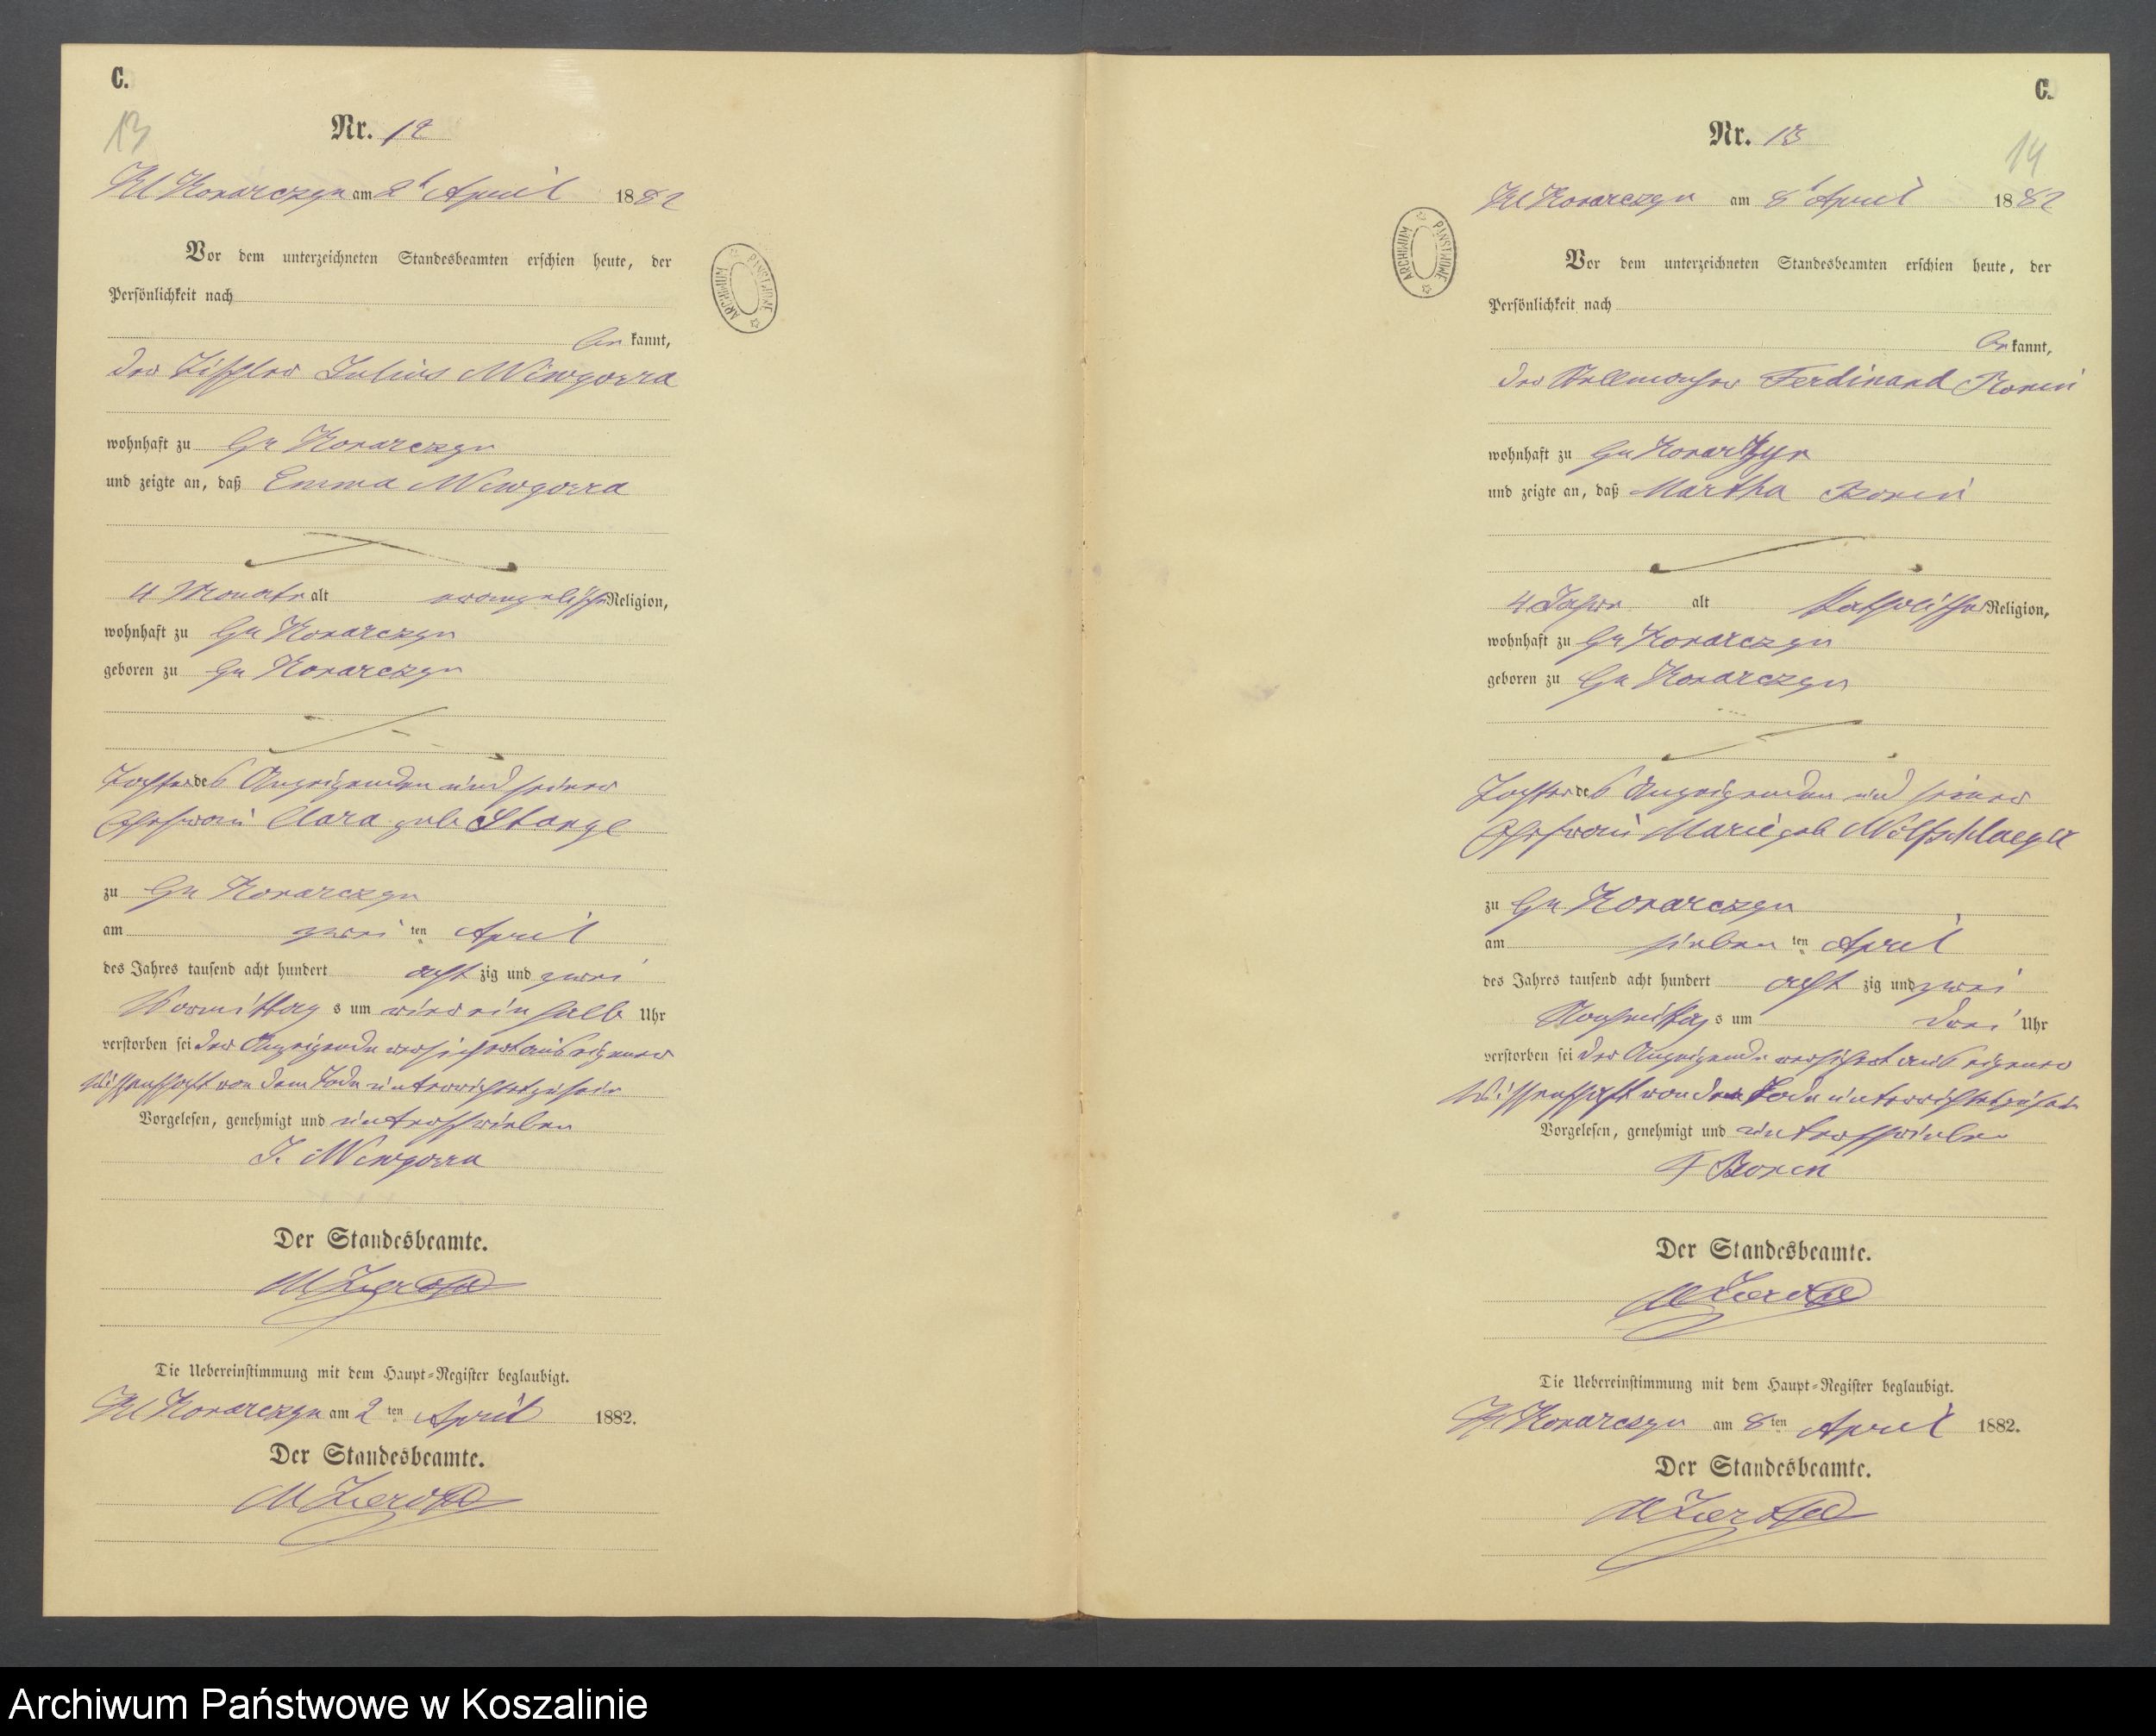 C.
13
Nr. 12
Kl Konarczyn am 2t April 1882
Vor dem unterzeichneten Standesbeamten erschien heute, der
Persönlichkeit nach
be kannt,
der Tischler Julius
wohnhaft zu Gr Konarczyn
und zeigte an, daß Emma
4 Monate alt evangelischer Religion,
wohnhaft zu Gr Konarczyn
geboren zu Gr Konarczyn
Tochter des Anzeigenden und seiner
Ehefrau Clara geb Stange
zu Gr Konarczyn
am zwei ten April
des Jahres tausend acht hundert acht zig und zwei
Vormittag s um vier ein halb Uhr
verstorben sei der Anzeigende versichert aus eigener
Wissenschaft von dem Tode unterrichtet zu sein
Vorgelesen, genehmigt und unterschrieben
J.
Der Standesbeamte.
Die Uebereinstimmung mit dem Haupt-Register beglaubigt.
Kl Konarczyn am 2 ten April 1882.
Der Standesbeamte.
ARCHIWUM PAŃSTWOWE
C.
14
Nr. 13
Kl Konarczyn am 8t April 1882
Vor dem unterzeichneten Standesbeamten erschien heute, der
Persönlichkeit nach
be kannt,
der Stellmacher Ferdinand
wohnhaft zu Gr Konarczyn
und zeigte an, daß Martha
4 Jahre alt katholischer Religion,
wohnhaft zu Gr Konarczyn
geboren zu Gr Konarczyn
Tochter des Anzeigenden und seiner
Ehefrau Marie geb Wolfschlaeger
zu Gr Konarczyn
am sieben ten April
des Jahres tausend acht hundert acht zig und zwei
Nachmittag s um drei Uhr
verstorben sei der Anzeigende versichert aus eigener
Wissenschaft von dem Tode unterrichtet zu sein
Vorgelesen, genehmigt und unterschrieben
F
Der Standesbeamte.
Die Uebereinstimmung mit dem Haupt-Register beglaubigt.
Kl Konarczyn am 8 ten April 1882.
Der Standesbeamte.
ARCHIWUM PAŃSTWOWE
Archiwum Państwowe w Koszalinie